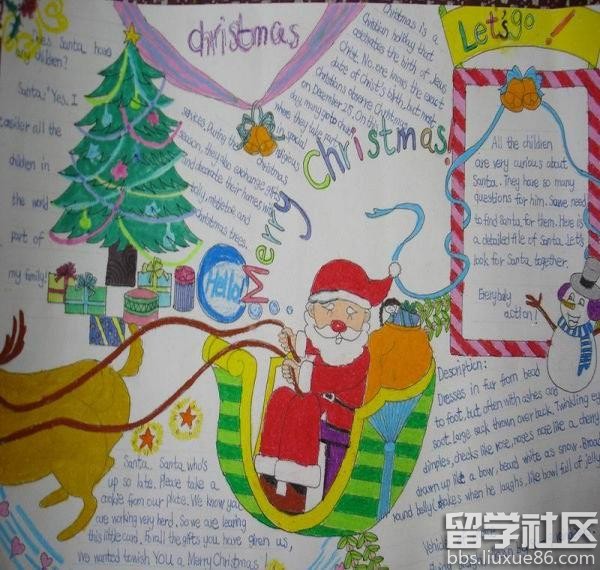 christmas
Let's go !
Does Santa have
any children?
Santa: "Yes. I
consider all the
children in
the world
part of
my family!
Christmas is a
Christian holiday that
celebrates the birth of Jesus
Christ. No one knows the exact
date of Christ's birth, but most
Christians observe Christmas
on December 25. On this
day, many go to church
where they take part
in special religious
services. During the christmas
season, they also exchange gifts
and decorate their homes with
holly, mistletoe and
Christmas trees.
Merry Christmas!
Hello!
All the children
are very curious about
Santa. They have so many
questions for him. So we need
to find santa for them. Here is
a detailed file of Santa. Let's
look for Santa together.
Everybody
action!
Description:
Dresses in fur from head
to foot, but often with ashes and
soot. large sack thrown over back. Twinkling eyes
dimples, cheeks like rose, noses nose like a cherry
drawn up like a bow, beard white as snow. Broad
round belly shakes when he laughs, like bowl full of jelly
Santa, Santa who's
up so late. Please take a
cookie from our plate. We know you
are working very herd. So we are leaving
this little card. For all the gifts you have given us,
we wanted to wish YOU a Merry Christmas!
留学社区
bbs.liuxue86.com